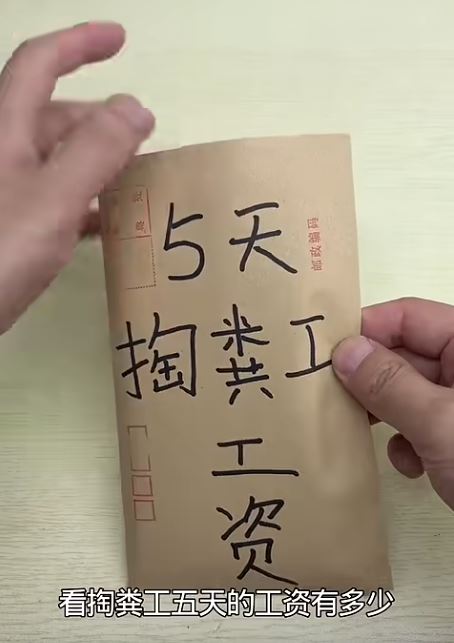 5天
掏粪工
工资
邮政编码
看掏粪工五天的工资有多少